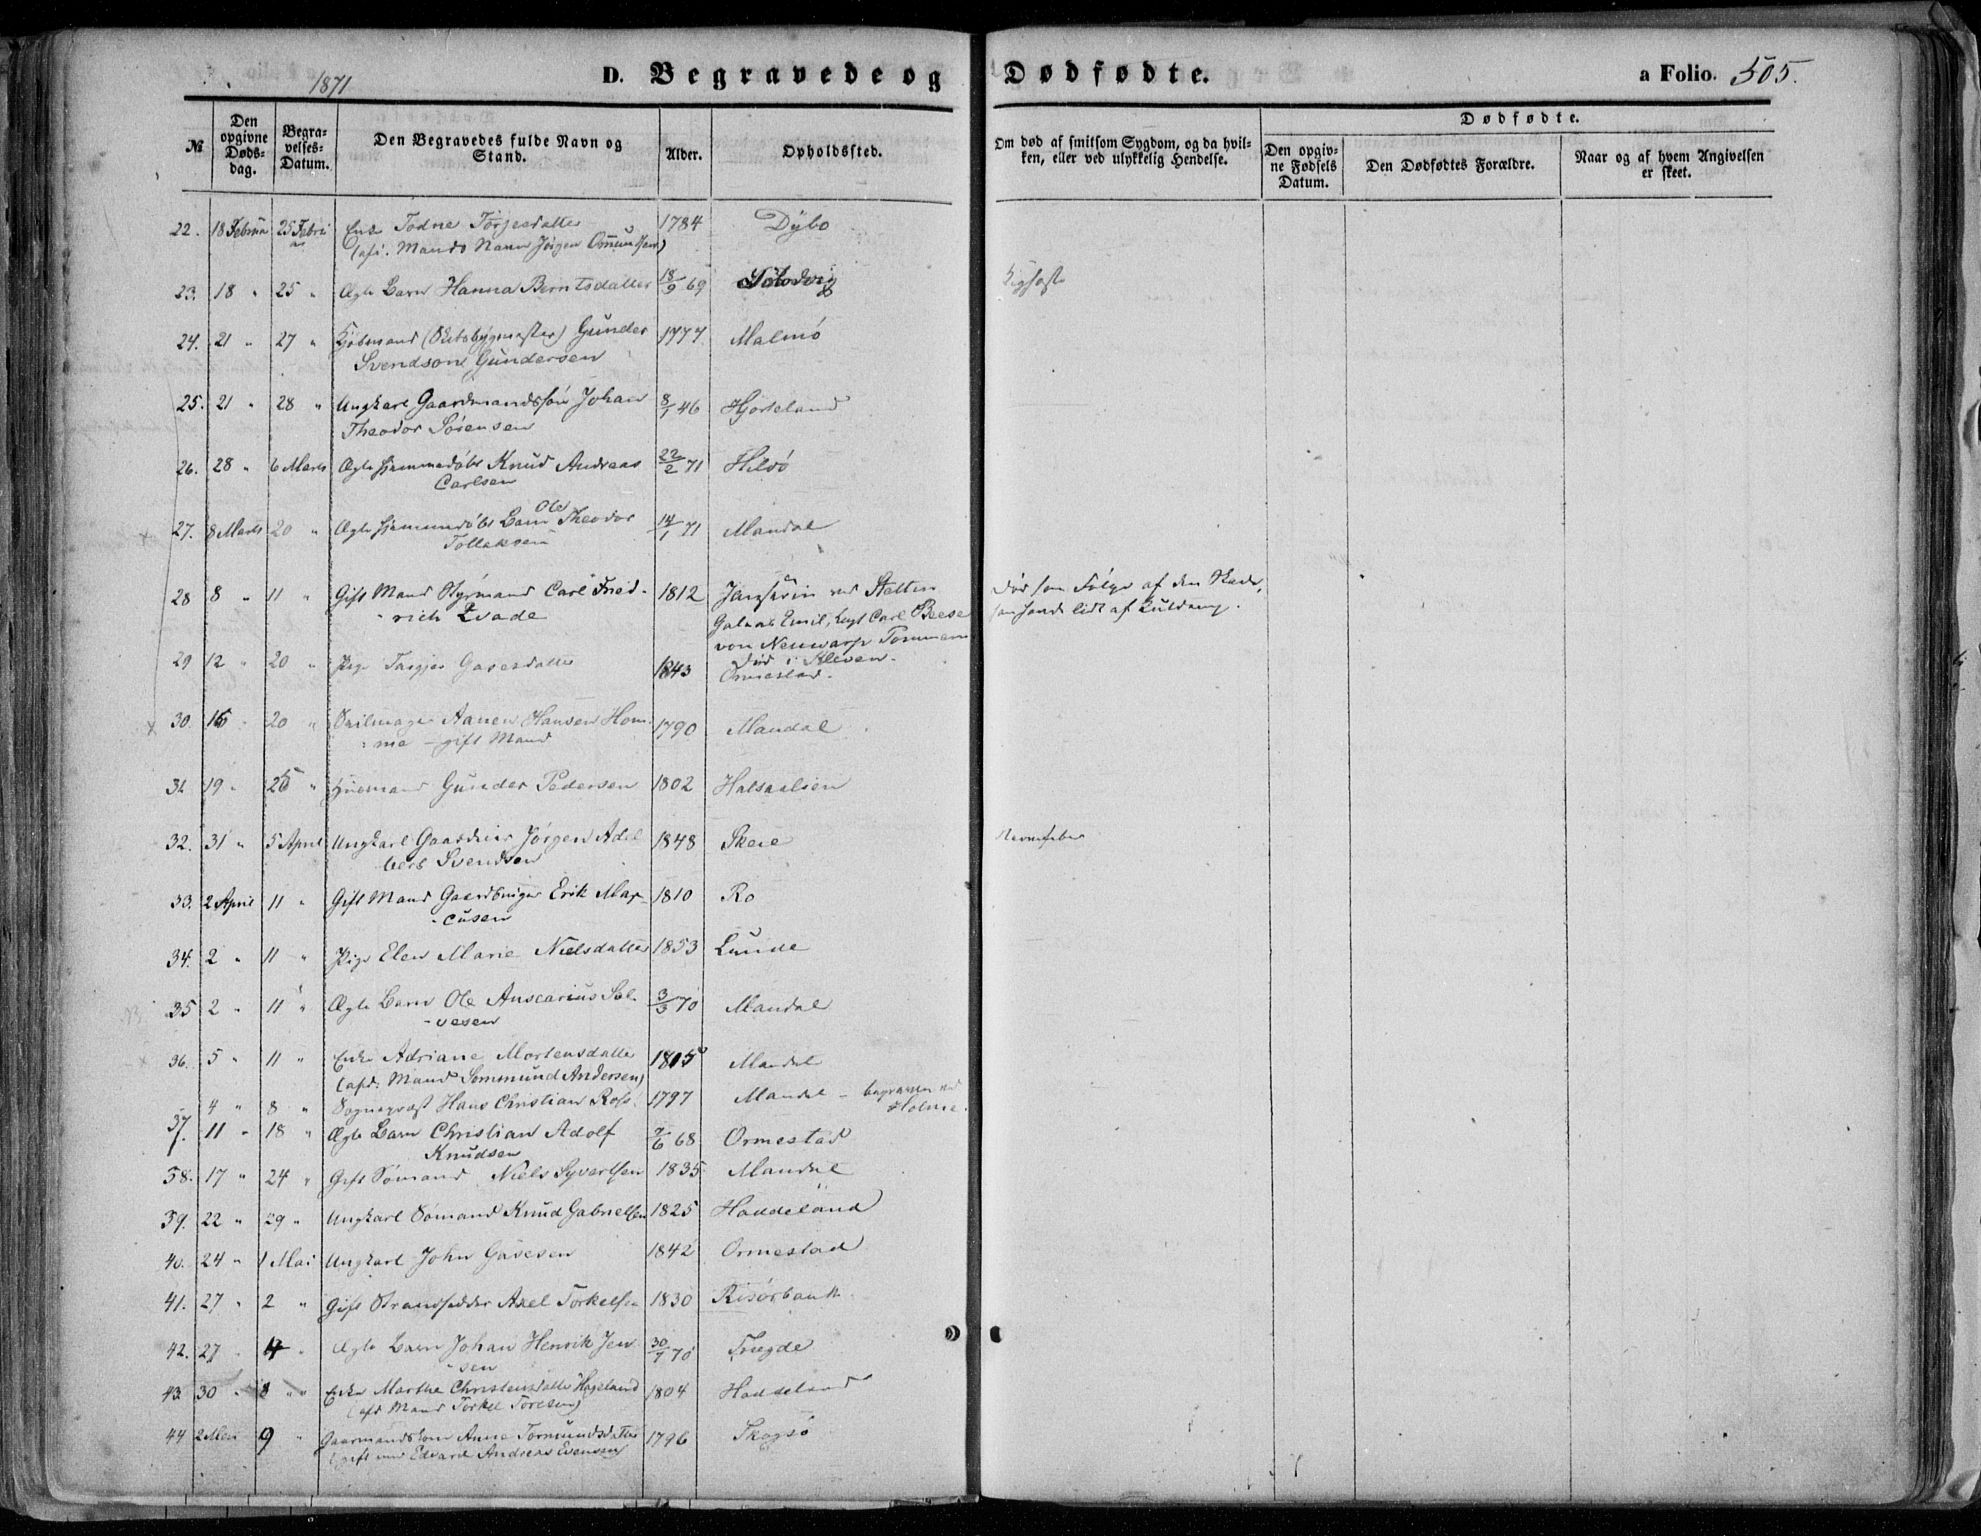 1871
D. Begravede og Dødfødte.
a Folio. 505.
No
Den opgivne Døds-dag.
Begra-velses-Datum.
Den Begravedes fulde Navn og Stand.
Alder.
Opholdssted.
Om død af smitsom Sygdom, og da hvil-
ken, eller ved ulykkelig Hendelse.
Dødfødte.
Den opgiv-
ne Fødsels
Datum.
Den Dødfødtes Forældre.
Naar og af hvem Angivelsen
er skeet.
22. 18 Februa 25 Febru Enke Todne Torjesdatter 1784 Dybo
(afd. Mands Navn Jörgen Omundsen)
23. 18 " 25 " Ægte Barn Hanna Berntsdatter 18/9 69
24. 21 " 27 " (Skibsbygmester) Gunder 1777 Malmö
Svendson Gundersen
25. 21 " 28 " Ungkarl Gaardmandssön Johan 8/1 46 Hjorteland
Theodor Sörensen
26. 28 " 6 Marts Ægte hjemmedöbt Knud Andreas 22/2 71 Hilsö
Carlsen
27. 8 Marts 20 " Ægte hjemmedöbt Barn Ole Theodor 14/1 71 Mandal
Tollaksen
28 8 " 11 " Gift Mand Styrmand Carl Fried- 1812
rich Evade
Död som Fölge af den Skade,
han havde lidt af Kuldang.
Galeas Emil, Capt Carl Beese
von Neuwarp Pommern
död i Kleven.
29 12 " 20 " Pige Targjer Gavesdatter 1843 Ormestad.
30. 16 " 20 " Seilmager Aanen Hansen Hom- 1790 Mandal
me - gift Mand
31. 19 " 26 " Huusmand Gunder Pedersen 1802 Halsaalien
32. 31 " 5 April Ungkarl Jörgen Adel 1848 Skeie Nervefeber
bert Svendsen
33. 2 April 11 " Gift Mand Gaardbruger Erik Mar- 1810 Ro
cusen
34. 2 " 11 " Pige Elen Marie Nielsdatter 1853 Lunde
35 2 " 11 " Ægte Barn Ole Anscarius Sal- 3/3 70 Mandal
vesen
36. 5 " 11 " Enke Adriane Mortensdatter 1805 Mandal
(afd. Mand Sommund Andersen)
4 " 8 " Sogneprest Hans Christian Ross. 1797 Mandal - begraven ved
Holme.
37. 11 " 18 " Ægte Barn Christian Adolf 2/6 68 Ormestad
Knudsen
38. 17 " 24 " Gift Sömand Niels Syvertsen 1835 Mandal
39. 22 " 29 " Ungkarl Sömand Knud Gabrielsen 1825 Haadeland
40. 24 " 1 Mai Ungkarl John Gavesen 1842 Ormestad
41. 27 " 2 " Gift Strandsidder Axel Torkelsen 1830 Risörbank
42. 27 " 4 " Ægte Barn Johan Henrik Jen 30/7 70 Tregde
sen
43 30 " 8 " " Enke Marthe Christensdatter Hageland 1804 Haadeland
(afd Mand Torkel Toresen)
44 2 Mai 9 " Gaarmandskone Anne Tormundsdatter 1796 Skogsö
(gift med Edvard Andreas Evensen)